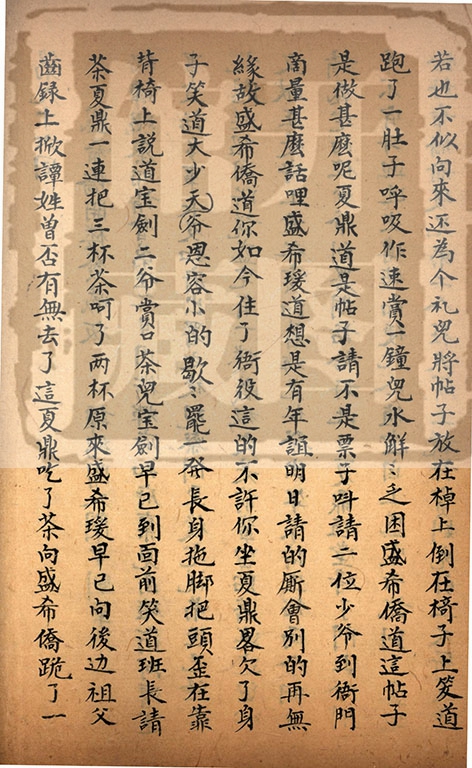 若也不似向來还為个礼兒將帖子放在棹上倒在椅子上笑道
跑了一肚子呼吸作速賞一鐘兒水鮮〻乏困盛希僑道這帖子
是做甚麽呢夏鼎道是帖子請不是票子呌請二位少爷到衙門
商量甚麽話哩盛希瑗道想是有年誼明日請的厮會别的再無
緣故盛希僑道你如今住了衙役這的不許你坐夏鼎畧欠了身
子笑道大少天爷恩容小的歇〻罷一發長身拖脚把頭歪在靠
背椅上説道宝劍二爷賞口茶兒宝劍早已到面前笑道班長請
茶夏鼎一連把三杯茶呵了两杯原來盛希瑗早已向後边祖父
齒録上掀譚姓曾否有無去了這夏鼎吃了茶向盛希僑跪了一